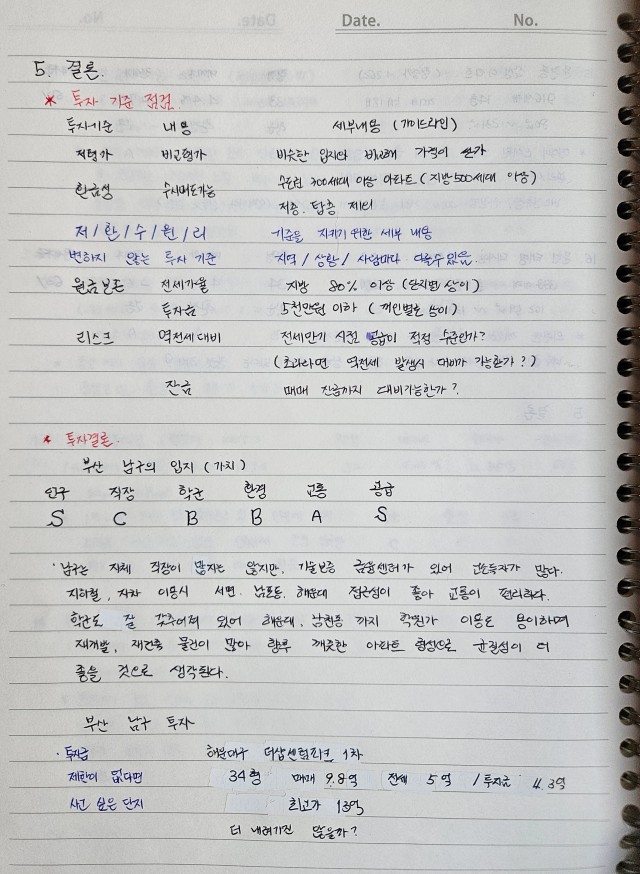 Date. No.
5. 결론.
* 투자 기준 점검.
투자기준 내용 세부내용 (가이드라인)
저평가 비교평가 비슷한 입지와 비교해 가격이 싼가
환금성 수시매도가능 수도권 300세대 이상 아파트 (지방 500세대 이상)
저층. 탑층 제외
저 / 환 / 수 / 원 / 리 기준을 지키기 위한 세부 내용
변하지 않는 투자 기준 지역 / 상황 / 사람마다 다를수있음.
원금보존 전세가율 지방 80% 이상 (단지별 상이)
투자금 5천만원 이하 (개인별로 상이)
리스크 역전세 대비 전세만기 시점 공급이 적정 수준인가?
(초과라면 역전세 발생시 대비가 가능한가?)
잔금 매매 잔금까지 대비가능한가?
* 투자결론.
부산 남구의 입지 (가치)
인구 직장 학군 환경 교통 공급
S C B B A S
· 남구는 자체 직장이 많지는 않지만, 기술보증 금융센터가 있어 고소득자가 많다.
지하철, 자차 이용시 서면. 남포동. 해운대 접근성이 좋아 교통이 편리하다.
학군도 잘 갖추어져 있어 해운대, 남천동 까지 학원가 이동도 용이하며
재개발, 재건축 물건이 많아 향후 깨끗한 아파트 형성으로 균질성이 더
좋을 것으로 생각된다.
부산 남구 투자
· 투자금 해운대구 더샵센텀파크 1차
제한이 없다면 34평 매매 9.8억 전세 5억 / 투자금 4.3억
사고 싶은 단지 최고가 13억
더 내려가진 않을까?